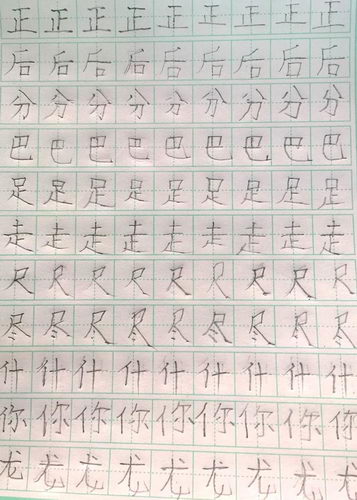 正正正正正正正正正
后后后后后后后后后
分分分分分分分分分
巴巴巴巴巴巴巴巴巴
足足足足足足足足足
走走走走走走走走走
尺尺尺尺尺尺尺尺尺
尽尽尽尽尽尽尽尽尽
什什什什什什什什什
你你你你你你你你你
尤尤尤尤尤尤尤尤尤